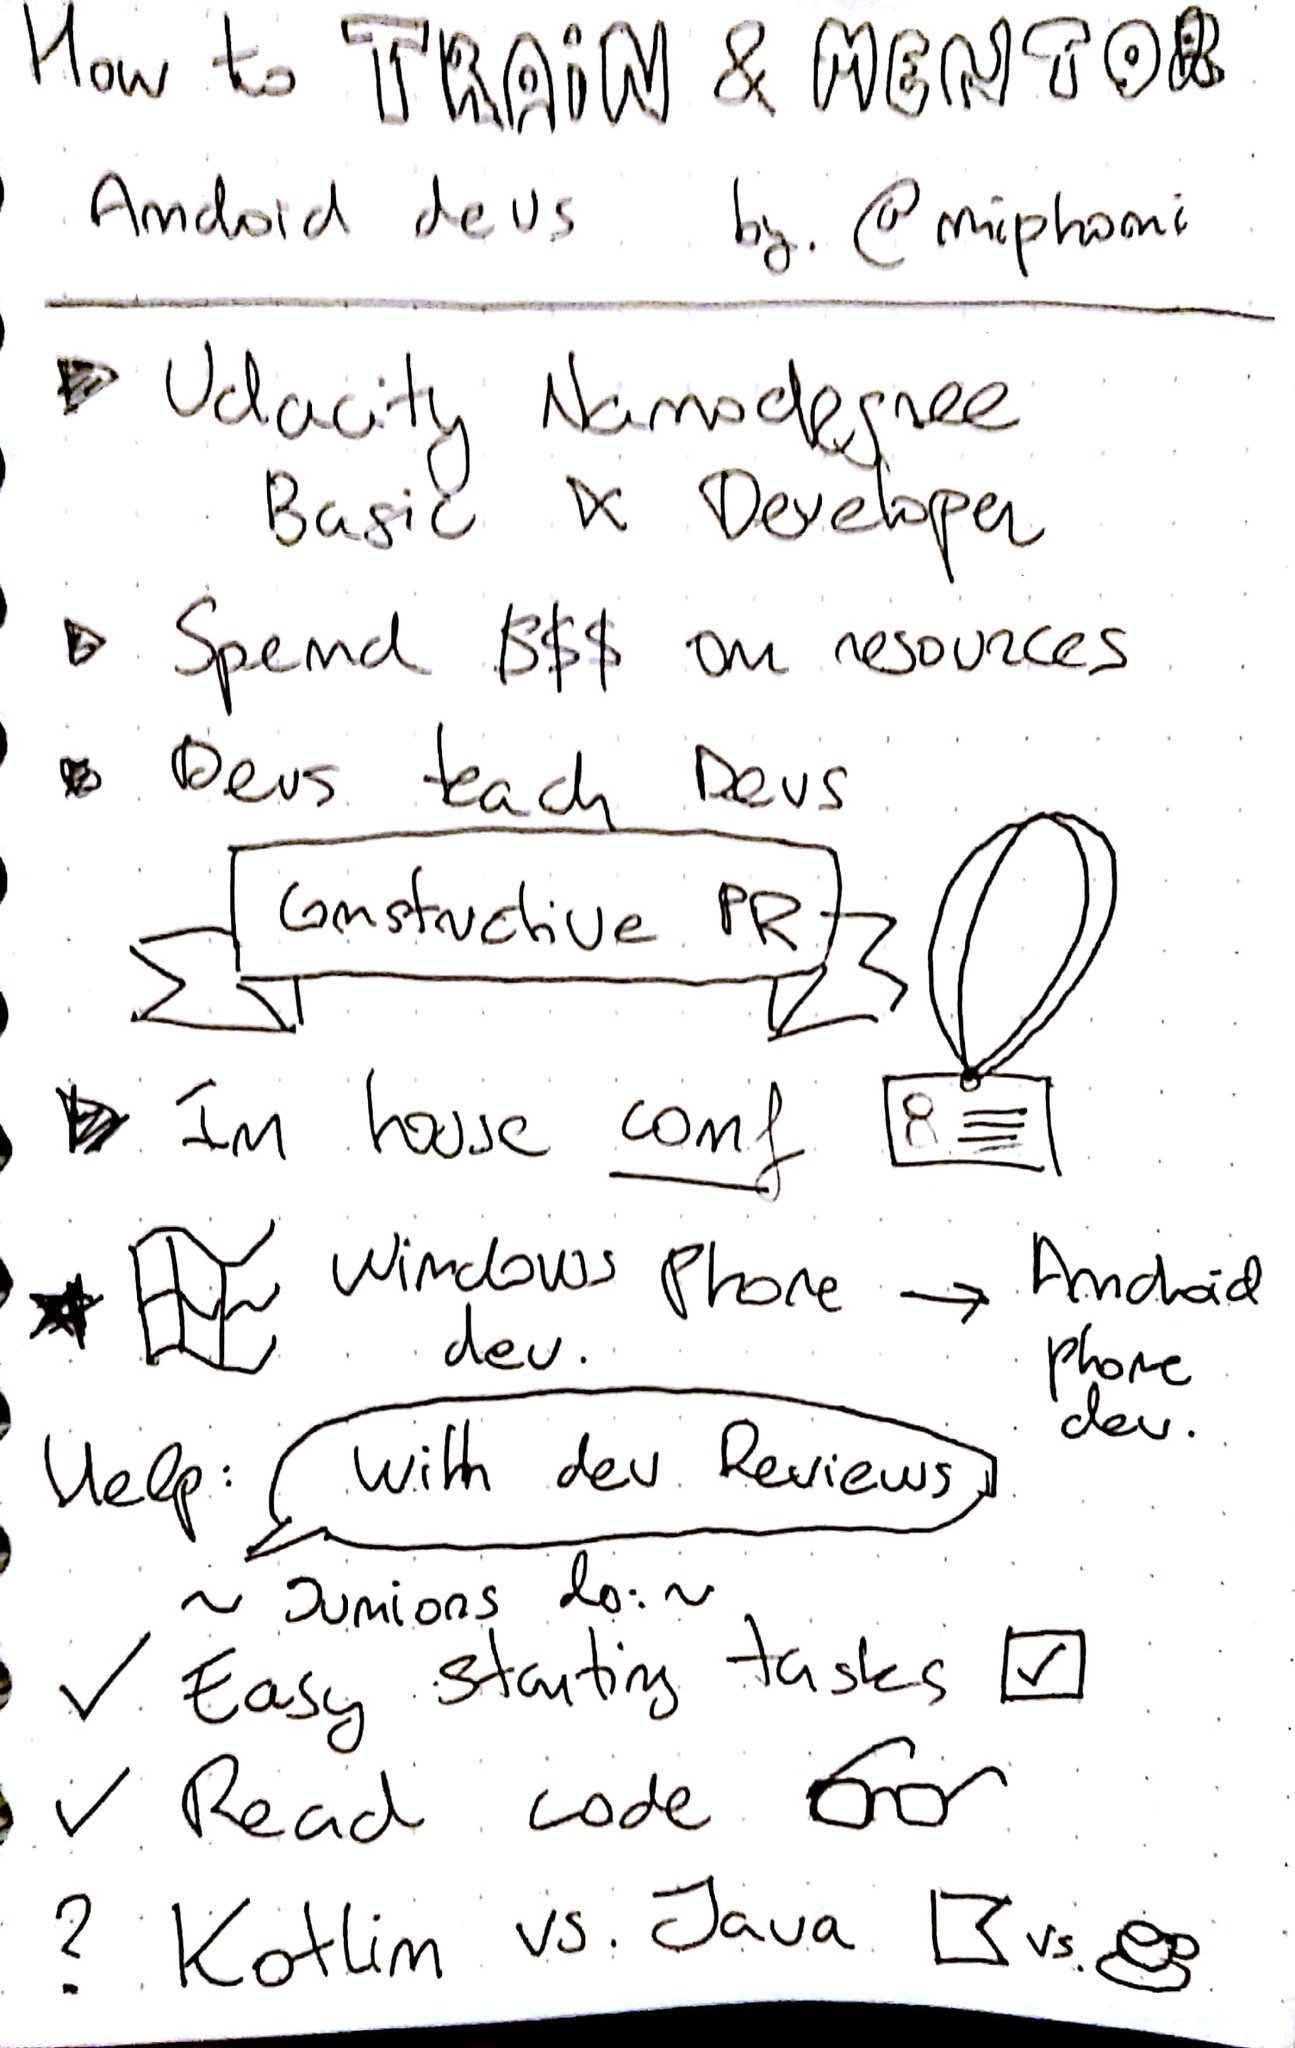 How to TRAiN & MENTOR
Android devs by. @miphami
Udacity Nanodegree
Basic & Developer
Spend $$$ on resources
Devs teach Devs
Constructive PR
In house conf
Windows Phone → Android
dev. phone
dev.
Help: With dev Reviews
~ Juniors do: ~
✓ Easy starting tasks ☑
✓ Read code
? Kotlin vs. Java vs.